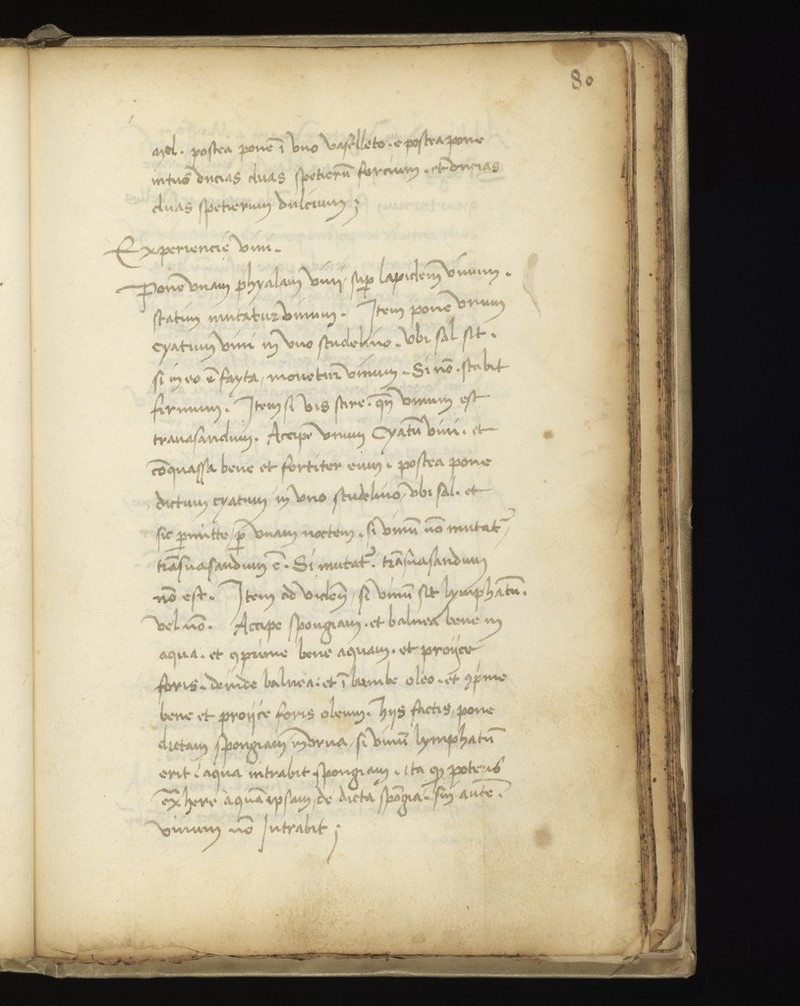 80
mel. postea pone ī vno vaselleto. e postea pone
intus oncias duas spetierū forcium. et oncias
duas spetierum dulcium;
Experiencie vini.
Pone vnam phyalam vini sup lapidem vinum.
statim mutatur vinum. Item pone vnum
cyatum vini in vno scudelino. vbi sal sit.
si in eo ē fayta, mouetur vinum. Si nō. stabit
firmum. Item si vis scire. qn̄ vinum est
trauasandum. Accipe vnum Cyatū vini. et
cōquassa bene et fortiter eum. postea pone
dictum cyatum in vno scudelino, vbi sal. et
sic pmitte p vnam noctem. si vinū nō mutat,
trāsuasandum ē. Si mutat. trāsuasandum
nō est. Item ad videndū, si vinū sit lymphatū.
vel nō. Accipe spongiam. et balnea bene in
aqua. et cprime bene aquam. et proijce
foris. deinde balnea. et ībumbe oleo. et cprime
bene et proijce foris oleum. hijs factis, pone
dictam spongiam in vna, si vinū lymphatū
erit. aqua intrabit spongiam. ita q poteris
exhere aquā ipsam de dicta spōgia. sin autē.
vinum nō Intrabit;